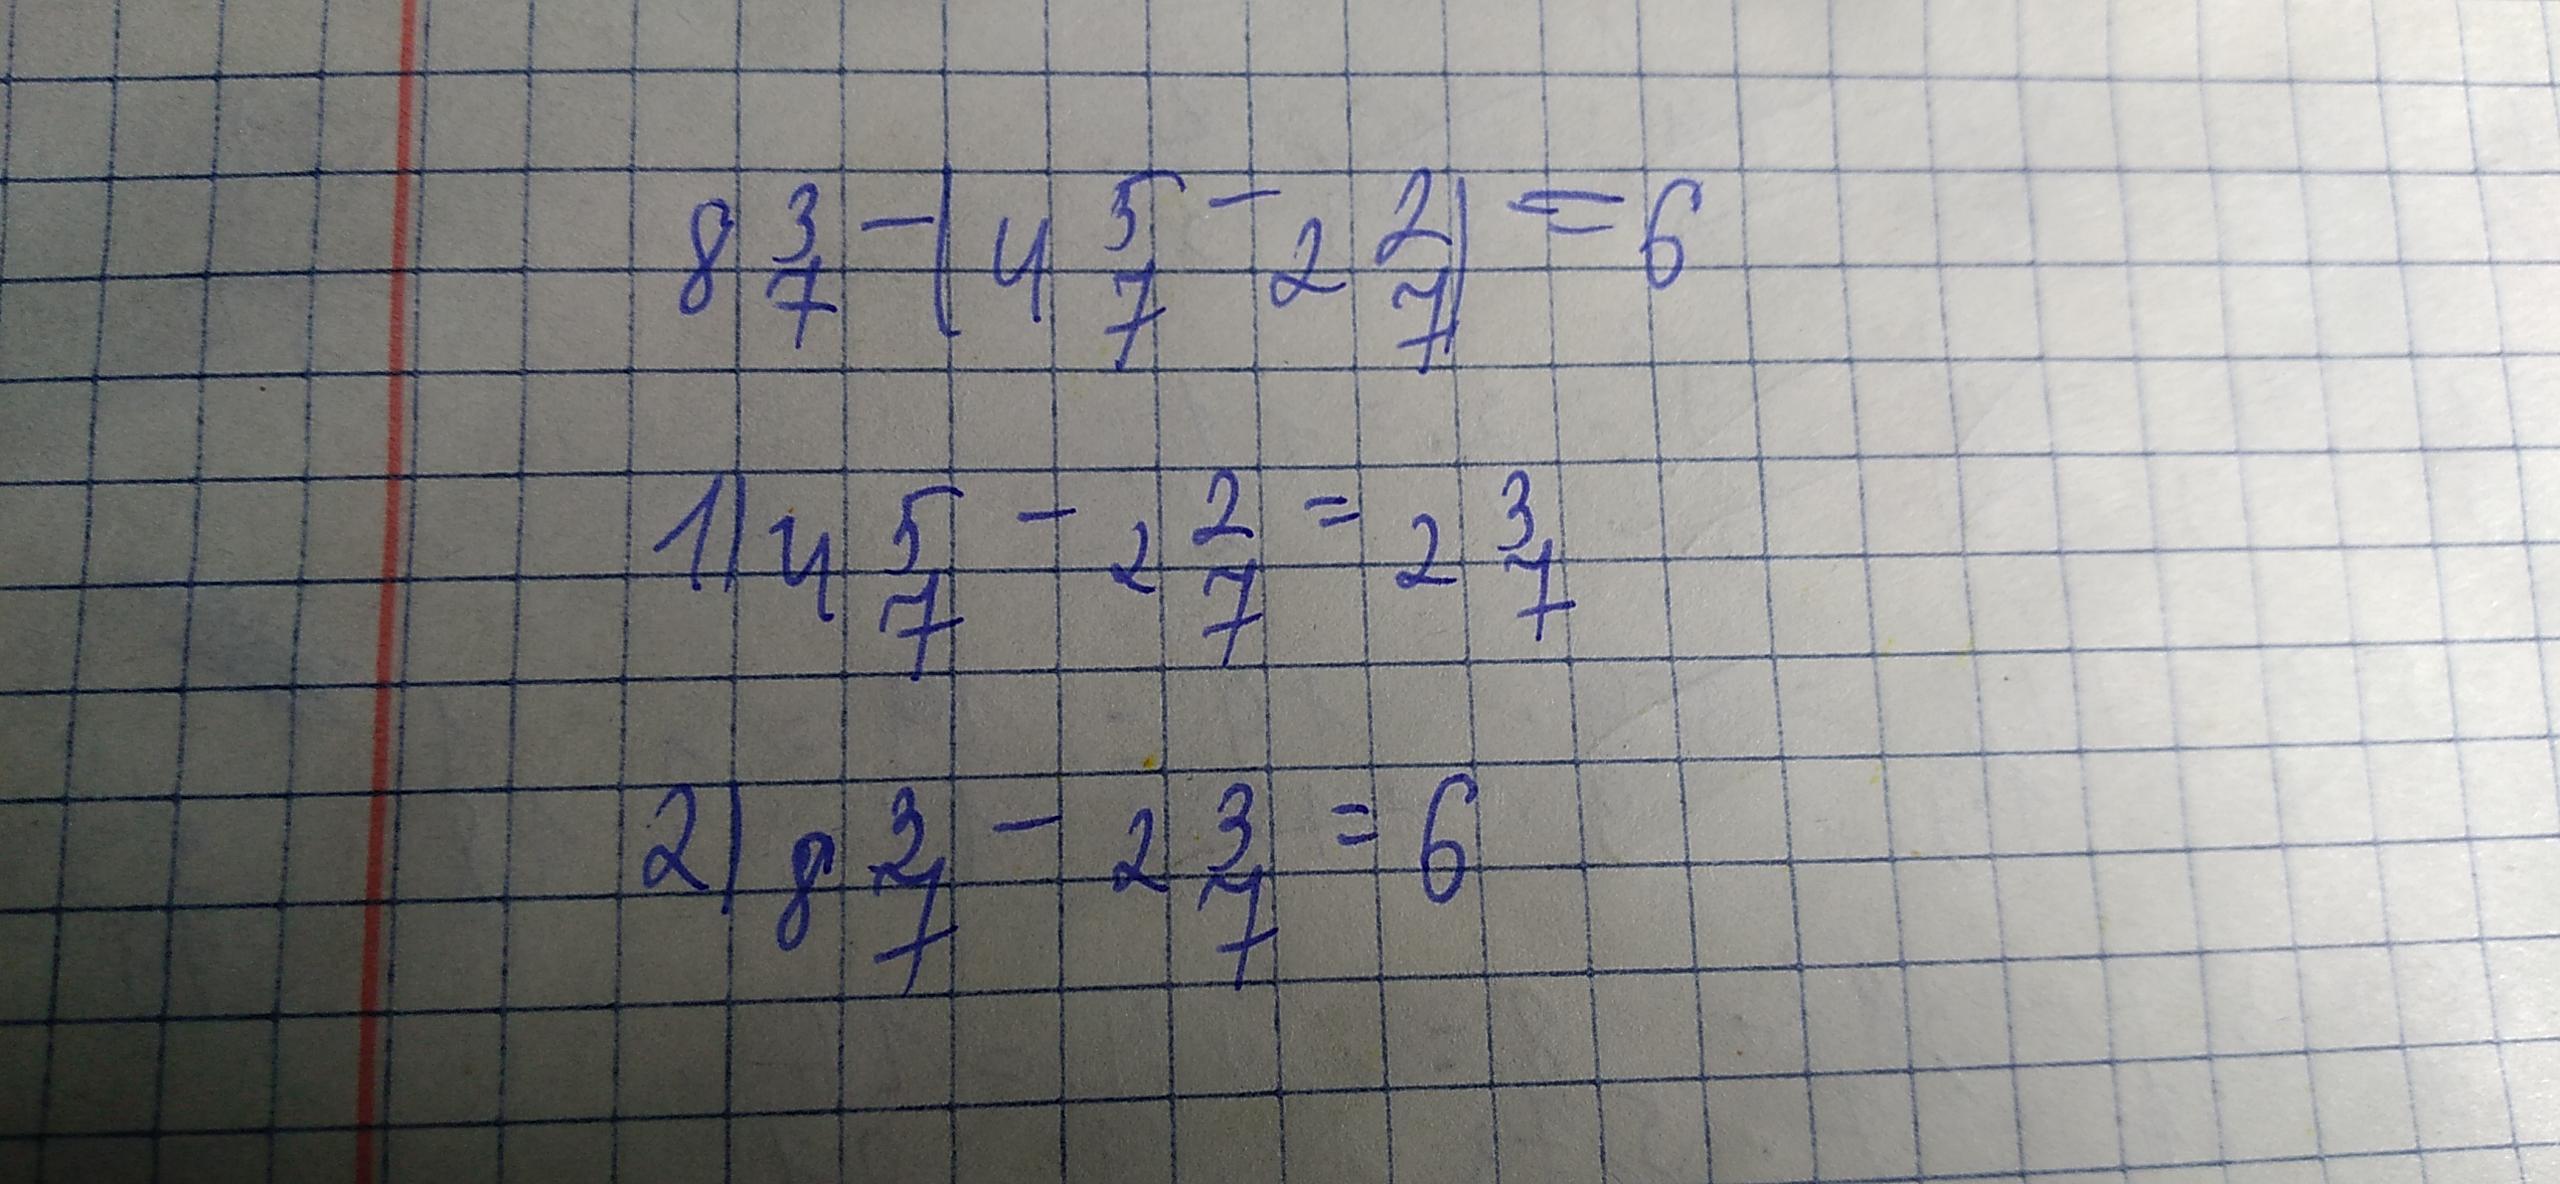 8 3/7 - (4 5/7 - 2 2/7) = 6
1) 4 5/7 - 2 2/7 = 2 3/7
2) 8 3/7 - 2 3/7 = 6